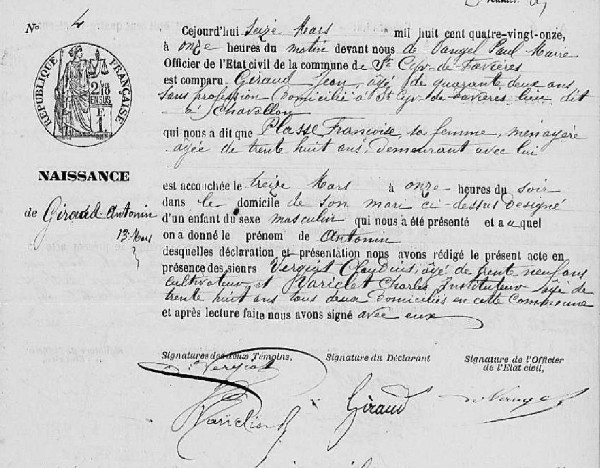 No 4
Cejourd'hui Seize Mars mil huit cent quatre-vingt-onze,
à onze heures du matin devant nous de Paul Marie
Officier de l'Etat civil de la commune de St Cyr-de-Favières
est comparu Giraud Jean, agé de quarante deux ans
sans profession domicilié à St Cyr de Favières lieu dit
qui nous a dit que Plasse Francoise sa femme, ménagère
agée de trente huit ans, demeurant avec lui
REPUBLIQUE FRANÇAISE
NAISSANCE
de Giraud Antonin
13 Mars
est accouchée le treize Mars à onze heures du soir
dans le domicile de son mari ci-dessus désigné
d'un enfant du sexe masculin qui nous a été présenté et auquel
on a donné le prénom de Antonin
desquelles déclaration et présentation nous avons rédigé le présent acte en
présence des sieurs agé de trente neuf ans
cultivateur et Charles Instituteur agé de
trente huit ans tous deux domiciliés en cette Commune
et après lecture faite nous avons signé avec eux
Signatures des deux Témoins, Signature du Déclarant Signature de l'Officier
de l'Etat civil,
Giraud